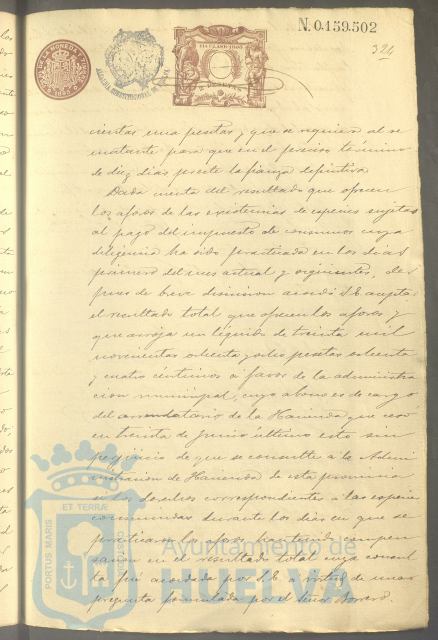 N. 0.159.502
324
11ª CLASE 1900
cientas una pesetas y que se requiera al re
matante para que en el preciso término
de diez dias preste la fianza definitiva
Dada cuenta del resultado que ofrecen
los aforos de las existencias de especies sujetas
al pago del impuesto de consumos cuya
diligencia ha sido practicada en los dias
primero del mes actual y siguientes, des
pues de breve discusion acordó S.E. aceptar
el resultado total que ofrecen los aforos y
que arroja un líquido de treinta mil
novecientas ochenta y ocho pesetas ochenta
y cuatro céntimos á favor de la administra
cion municipal, cuyo abono es de cargo
del arrendatario de la Hacienda, que cesó
en treinta de Junio último esto sin
perjuicio de que se consulte á la Admi
nistracion de Hacienda de esta provincia
si los derechos correspondiente á las especies
consumidas durante los dias en que se
practicaron los aforos han tenido compen
sacion en el resultado total cuya consul
ta fue acordada por S.E. á virtud de una
pregunta formulada por el Señor Borrero.
PORTUS MARIS
ET TERRÆ
CUSTODIO
Ayuntamiento de
HUELVA